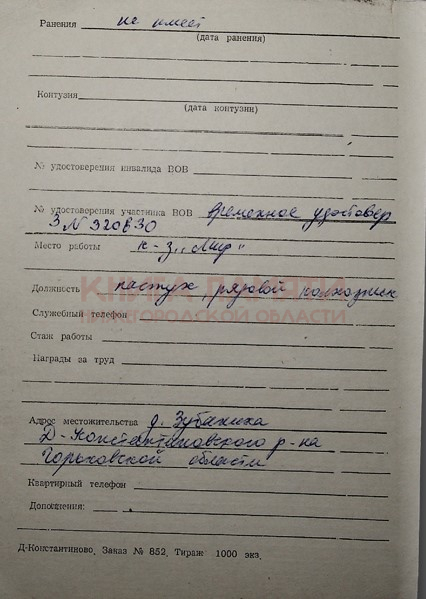 Ранения не имеет
(дата ранения)
Контузия
(дата контузии)
№ удостоверения инвалида ВОВ
№ удостоверения участника ВОВ временное удостовер
З № 320830
Место работы к-з „Мир"
КНИГА ПАМЯТИ
Должность пастух, рядовой колхозник
НИЖЕГОРОДСКОЙ ОБЛАСТИ
Служебный телефон
Стаж работы
Награды за труд
Адрес местожительства д. Зубаниха
Д-Константиновского р-на
Горьковской области
Квартирный телефон
Дополнения:
Д-Константиново, Заказ № 852, Тираж 1000 экз.